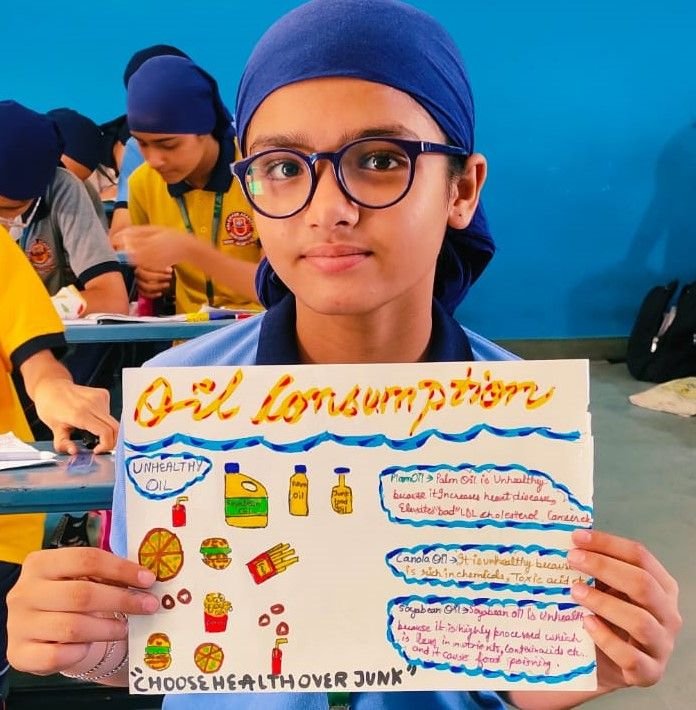 Oil Consumption
UNHEALTHY
OIL
Palm Oil is Unhealthy
because it Increases heart disease,
Elevate "bad" LDL cholesterol, Cancer etc
Canola Oil → It is unhealthy because
is rich in chemicals, Toxic acid etc
Soyabean Oil → Soyabean oil is Unhealth
because it is highly processed which
is low in nutrients,
and it cause food poisoning.
"CHOOSE HEALTH OVER JUNK"